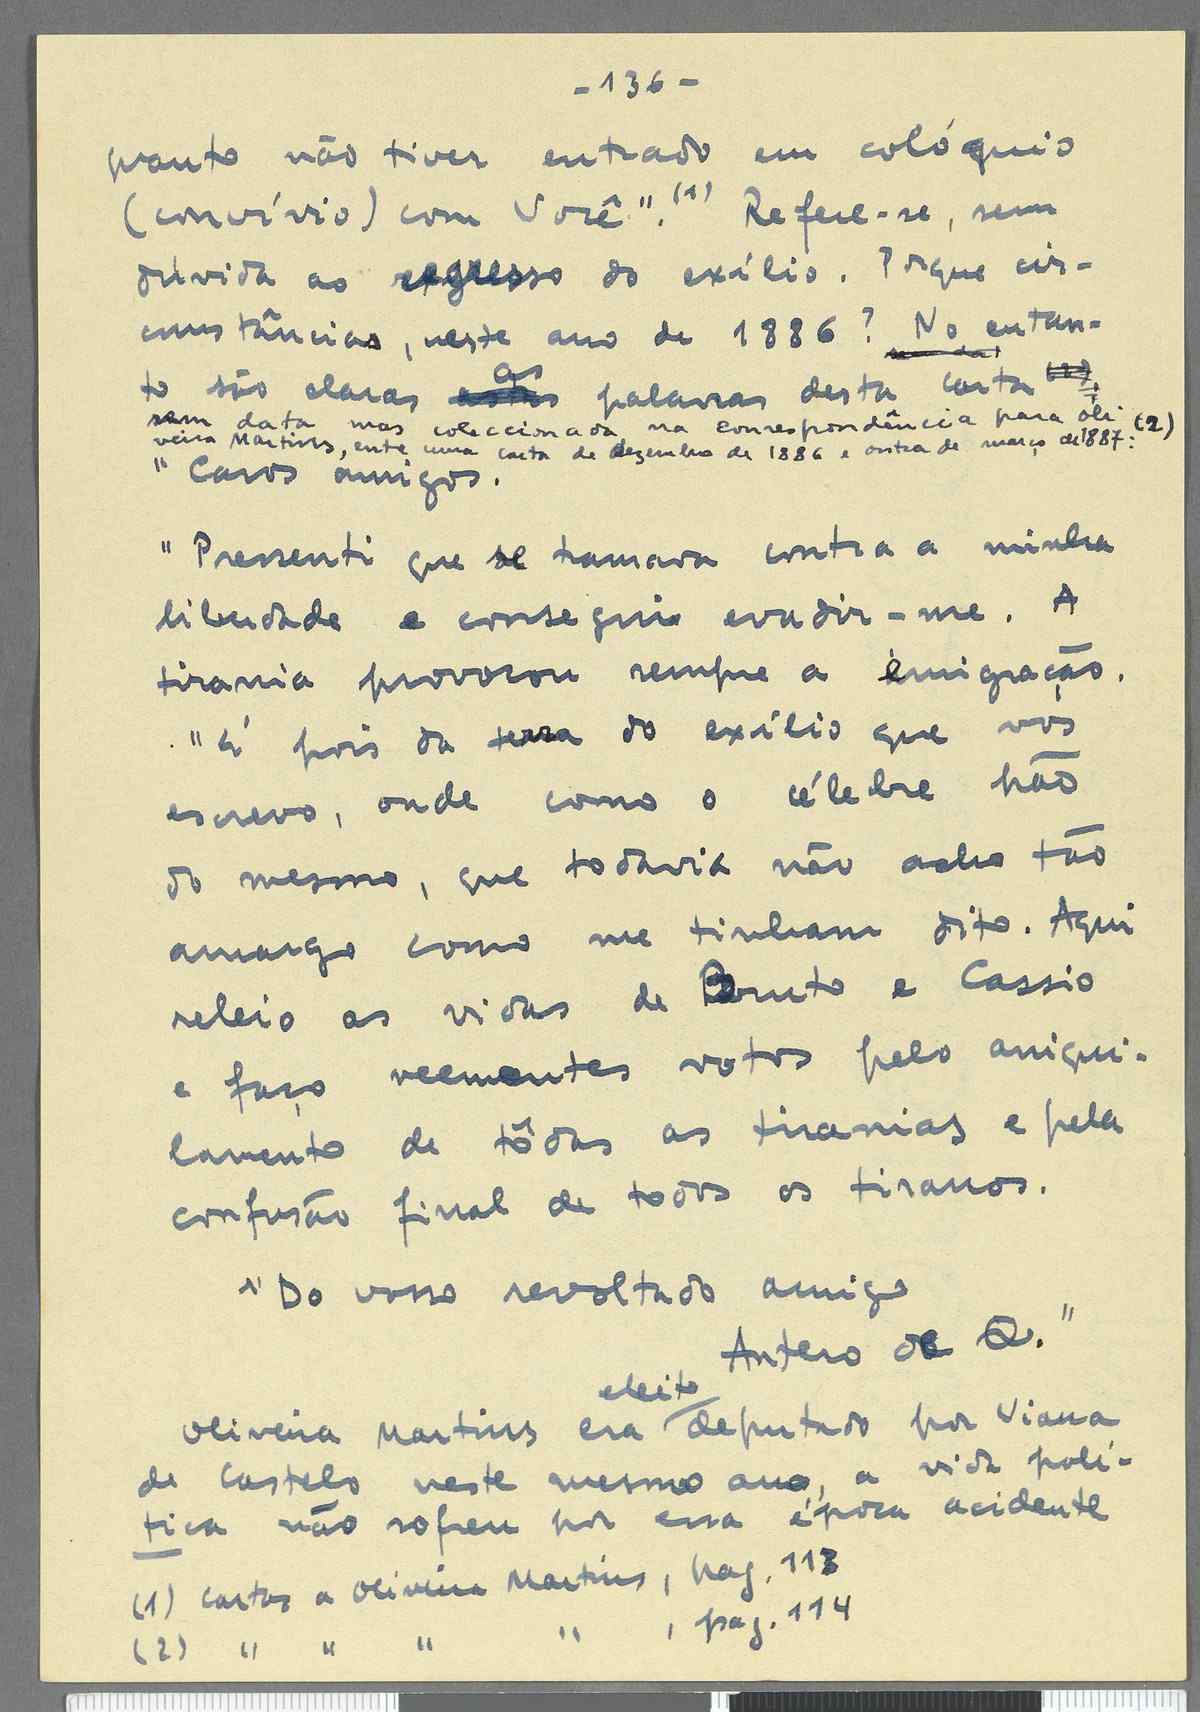 - 136 -
quanto não tiver entrado em colóquio
(convívio) com Você".(1) Refere-se, sem
dúvida ao regresso do exílio. Porque cir-
cunstâncias, neste ano de 1886? No entan-
to são claras as palavras desta carta
sem data mas coleccionada na Correspondência para Oli-
veira Martins, entre uma carta de dezembro de 1886 e outra de março de 1887: (2)
"Caros amigos.
"Pressenti que se tramava contra a minha
liberdade e consegui evadir-me. A
tirania provocou sempre a emigração.
"É pois da terra do exílio que vos
escrevo, onde como o célebre pão
do mesmo, que todavia não acho tão
amargo como me tinham dito. Aqui
releio as vidas de Bruto e Cassio
e faço veementes votos pelo aniqui-
lamento de tôdas as tiranias e pela
confusão final de todos os tiranos.
"Do vosso revoltado amigo
Antero de Q."
Oliveira Martins era eleito deputado por Viana
de Castelo neste mesmo ano, a vida polí-
tica não sofreu por essa época acidente
(1) Cartas a Oliveira Martins, pag. 113
(2) " " " " , pag. 114